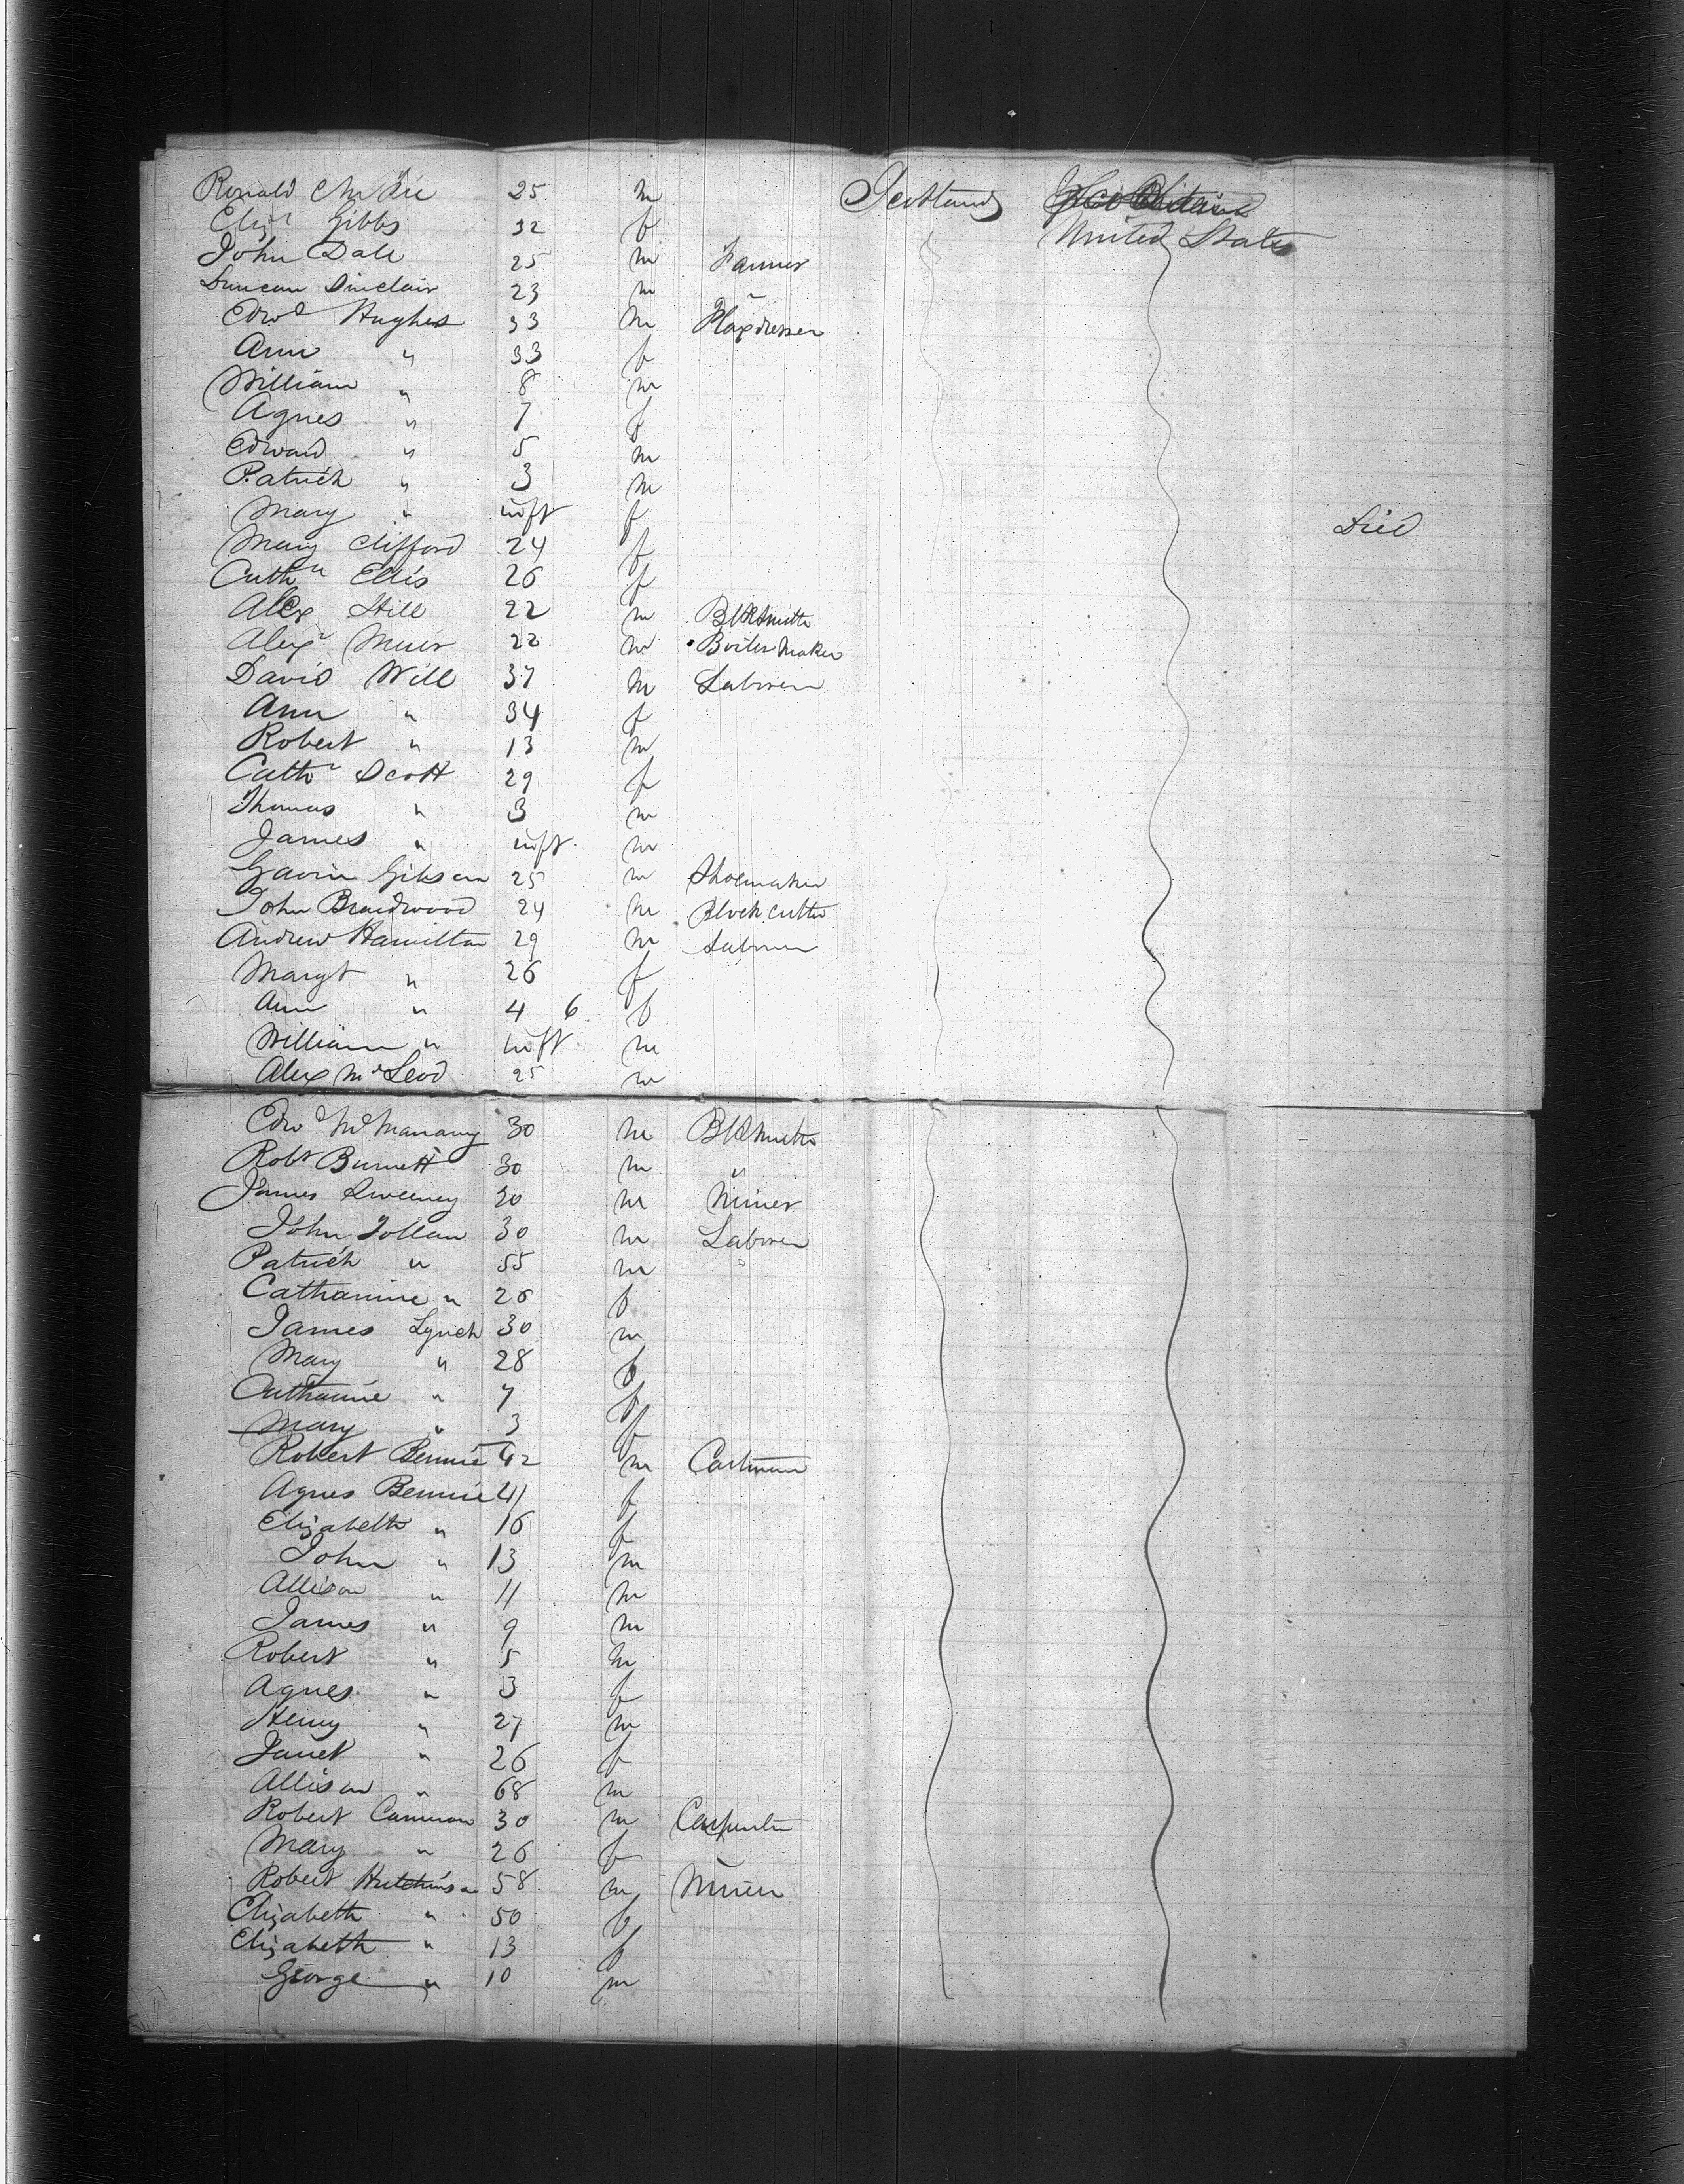 Ronald 25 m Scotland
United States
Eliz Gibbs 32 f
John Dale 25 m Farmer
Duncan Sinclair 23 m "
Edwd Hughes 33 m Flaxdresser
Ann " 33 f
William " 8 m
Agnes " 7 f
Edward " 5 m
Patrick " 3 m
Mary " inft f Died
Mary Clifford 24 f
Cathn Ellis 26 f
Alex Hill 22 m Blksmith
Alexr Muir 22 m Boiler Maker
David Will 37 m Laborer
Ann " 34 f
Robert " 13 m
Cathr Scott 29 f
Thomas " 3 m
James " inft m
Gavin Gibson 25 m Shoemaker
John Braidwood 24 m Block cutter
Andrew Hamilton 29 m Laborer
Margt " 26 f
Ann " 4 6 f
William " inft m
Alex McLeod 25 m
Edwd McManamy 30 m Blksmith
Robt Burnett 30 m "
James Sweeney 20 m Miner
John Tollan 30 m Laborer
Patrick " 55 m "
Catharine " 26 f
James Lynch 30 m
Mary " 28 f
Catharine " 7 f
Mary " 3 f
Robert Bennie 42 m Cartman
Agnes Bennie 41 f
Elizabeth " 16 f
John " 13 m
Allison " 11 m
James " 9 m
Robert " 5 m
Agnes " 3 f
Henry " 27 m
Janet " 26 f
Allison " 68 m
Robert Cameron 30 m Carpenter
Mary " 26 f
Robert Hutchinson 58 m Miner
Elizabeth " 50 f
Elizabeth " 13 f
George " 10 m